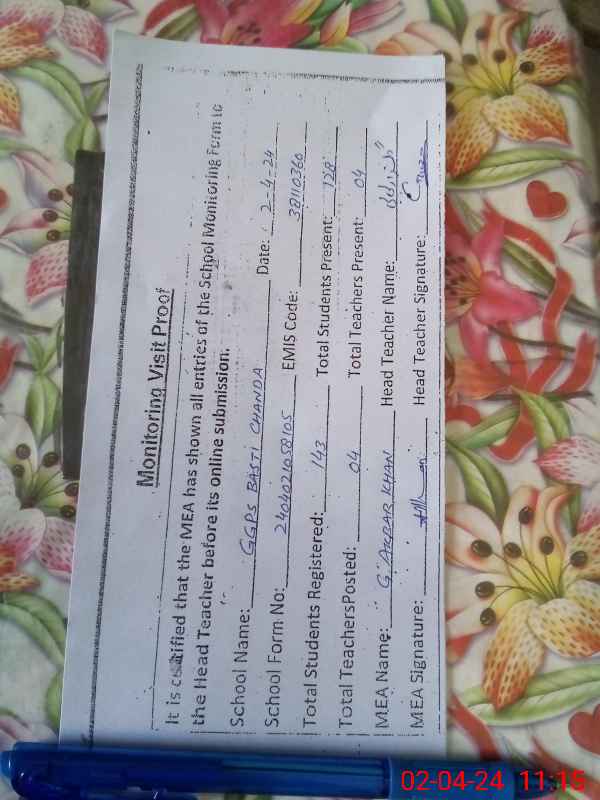 Monitoring Visit Proof
It is certified that the MEA has shown all entries of the School Monitoring Form to
the Head Teacher before its online submission.
School Name: GGPS BASTI CHANDA Date: 2-4-24
School Form No: 2404021058105 EMIS Code: 38110360
Total Students Registered: 143 Total Students Present: 128
Total TeachersPosted: 04 Total Teachers Present: 04
MEA Name: G. AKBAR KHAN Head Teacher Name:
MEA Signature: Head Teacher Signature:
02-04-24 11:15